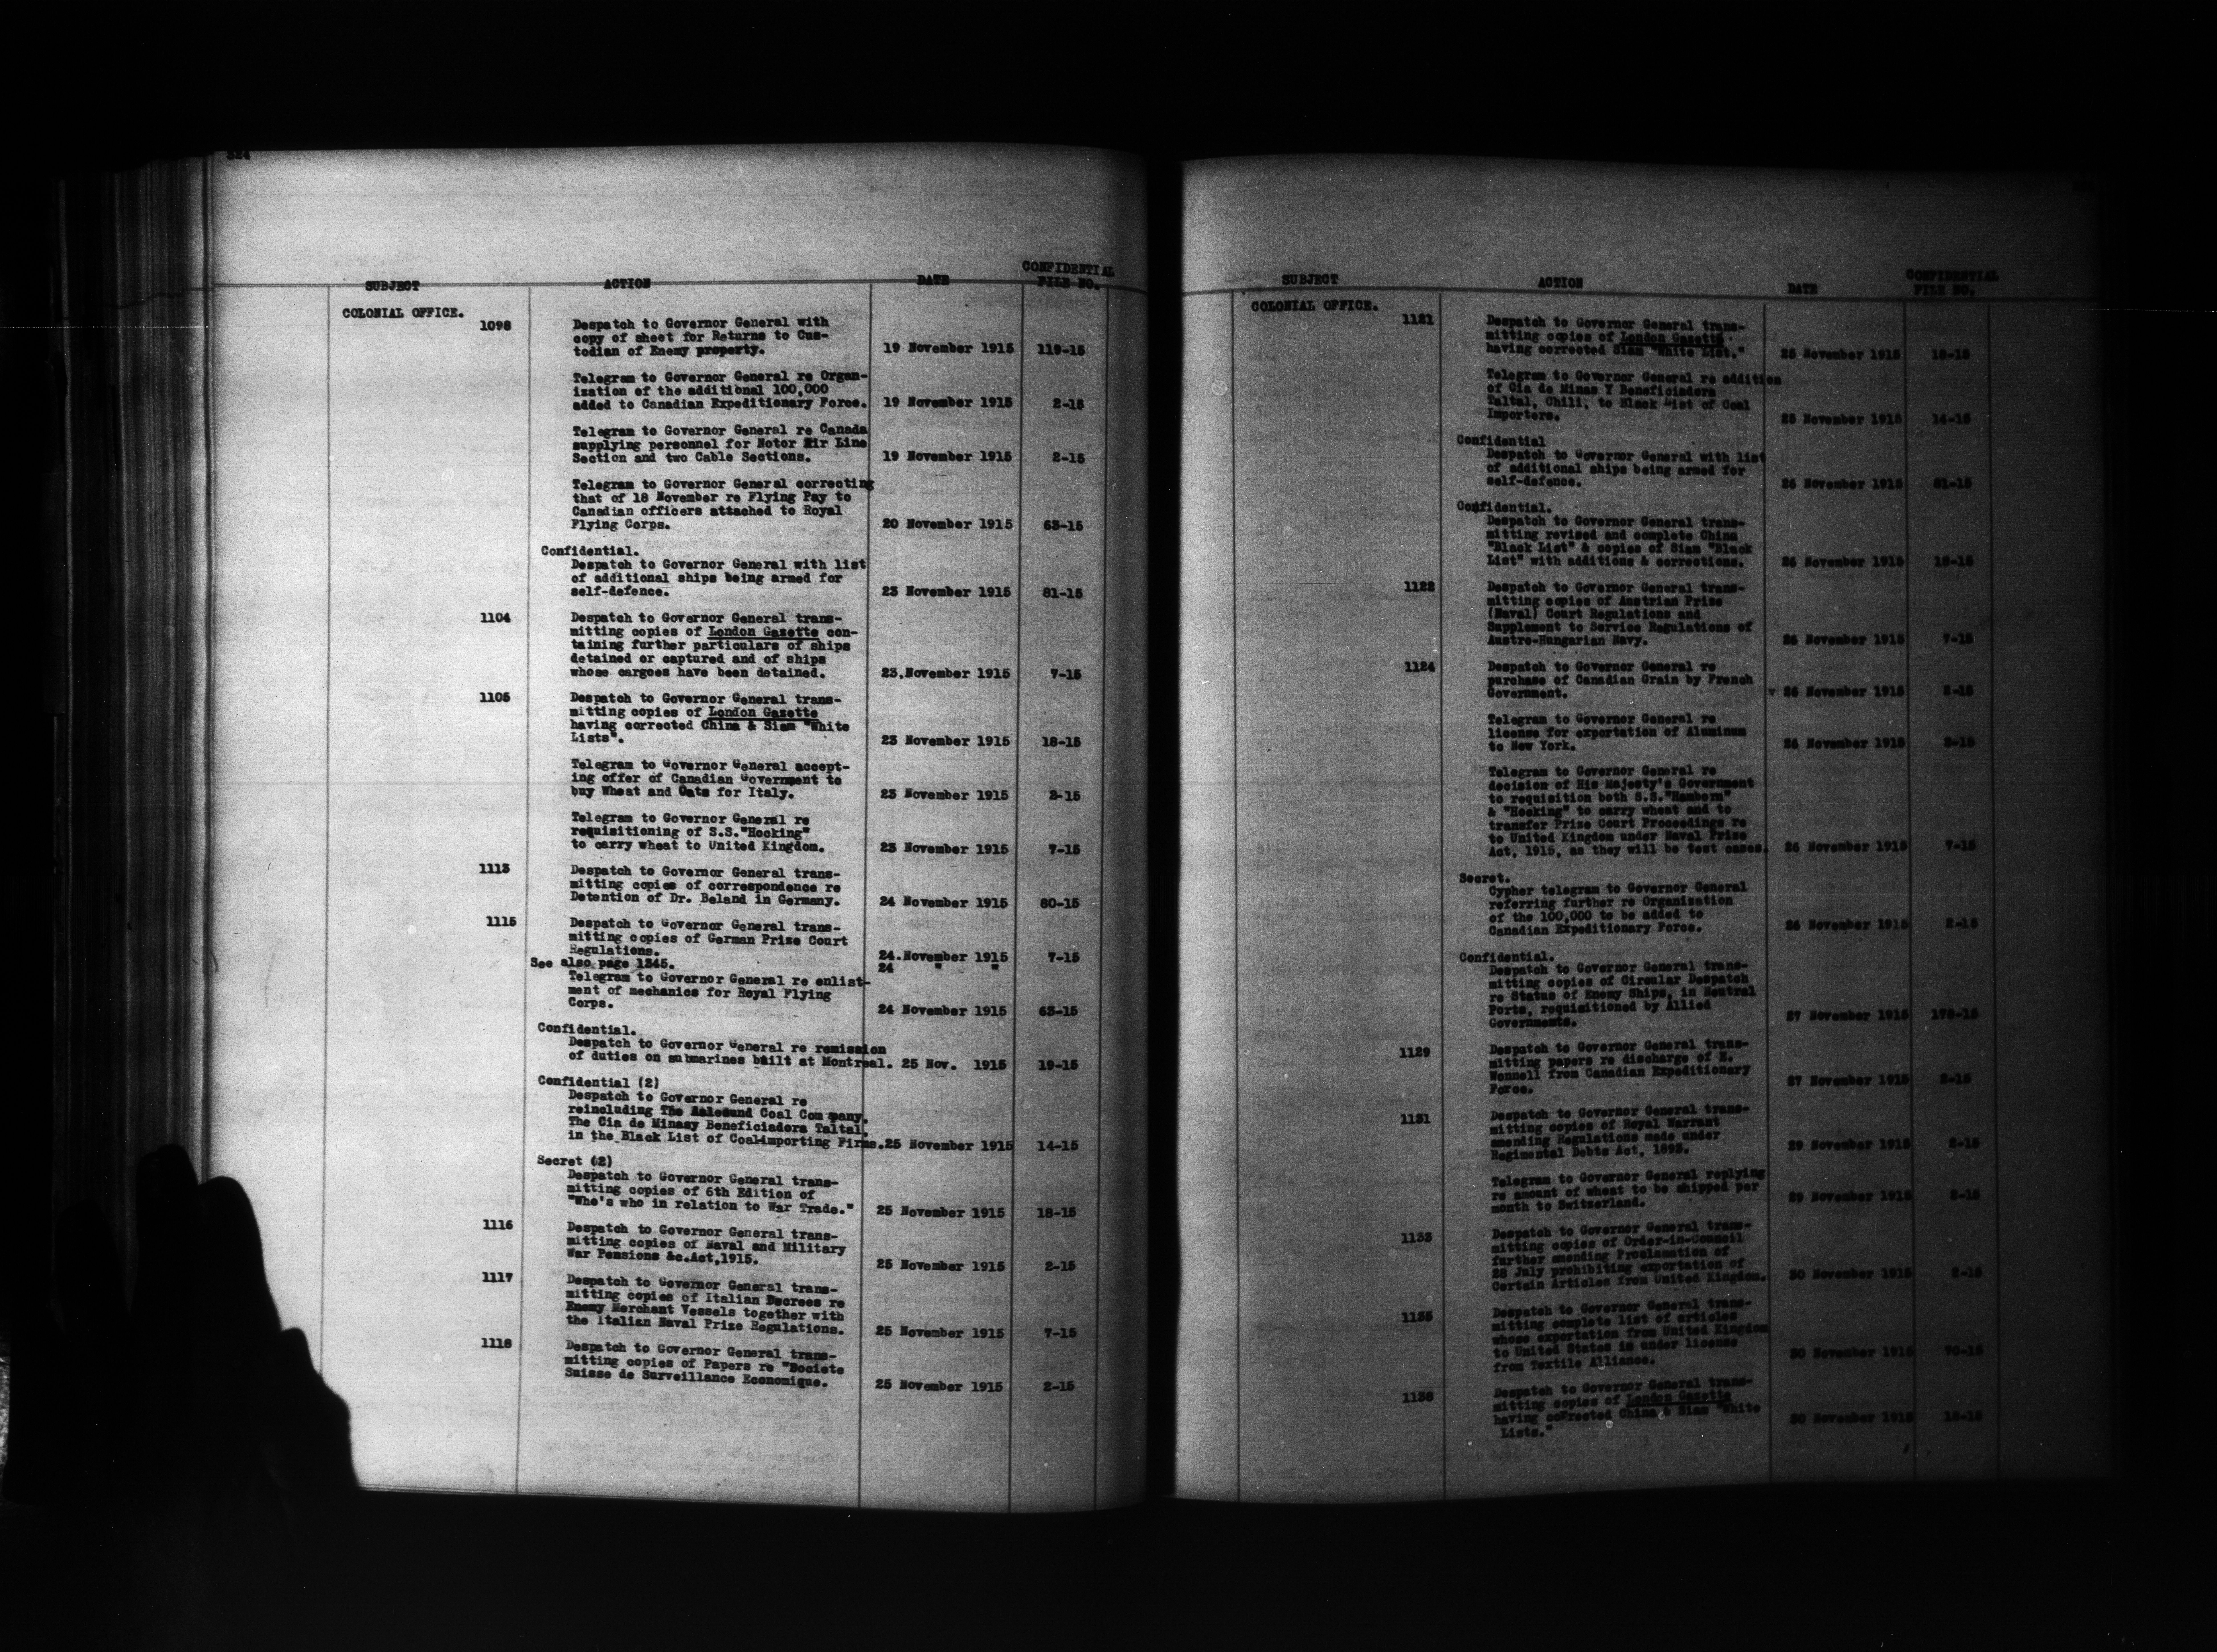 224
SUBJECT ACTION DATE CONFIDENTIAL FILE NO.
COLONIAL OFFICE.
1098 Despatch to Governor General with
copy of sheet for Returns to Cus-
todian of Enemy property. 19 November 1915 119-15
Telegram to Governor General re Organ-
ization of the additional 100,000
added to Canadian Expeditionary Force. 19 November 1915 2-15
Telegram to Governor General re Canada
supplying personnel for Motor Air Line
Section and two Cable Sections. 19 November 1915 2-15
Telegram to Governor General correcting
that of 18 November re Flying Pay to
Canadian officers attached to Royal
Flying Corps. 20 November 1915 63-15
Confidential.
Despatch to Governor General with list
of additional ships being armed for
self-defence. 23 November 1915 81-15
1104 Despatch to Governor General trans-
mitting copies of London Gazette con-
taining further particulars of ships
detained or captured and of ships
whose cargoes have been detained. 23.November 1915 7-15
1105 Despatch to Governor General trans-
mitting copies of London Gazette
having corrected China & Siam "White
Lists". 23 November 1915 18-15
Telegram to Governor General accept-
ing offer of Canadian Government to
buy Wheat and Oats for Italy. 23 November 1915 2-15
Telegram to Governor General re
requisitioning of S.S."Hocking"
to carry wheat to United Kingdom. 23 November 1915 7-15
1113 Despatch to Governor General trans-
mitting copies of correspondence re
Detention of Dr. Beland in Germany. 24 November 1915 80-15
1115 Despatch to Governor General trans-
mitting copies of German Prize Court
Regulations. 24.November 1915 7-15
See also page 1345. 24 " "
Telegram to Governor General re enlist-
ment of mechanics for Royal Flying
Corps. 24 November 1915 63-15
Confidential.
Despatch to Governor General re remission
of duties on submarines built at Montreal. 25 Nov. 1915 19-15
Confidential (2)
Despatch to Governor General re
reincluding The Aalesund Coal Company,
The Cia de Minasy Beneficiadora Taltal,
in the Black List of Coal-importing Firms. 25 November 1915 14-15
Secret (2)
Despatch to Governor General trans-
mitting copies of 6th Edition of
"Who's who in relation to War Trade." 25 November 1915 18-15
1116 Despatch to Governor General trans-
mitting copies of Naval and Military
War Pensions &c.Act,1915. 25 November 1915 2-15
1117 Despatch to Governor General trans-
mitting copies of Italian Decrees re
Enemy Merchant Vessels together with
the Italian Naval Prize Regulations. 25 November 1915 7-15
1118 Despatch to Governor General trans-
mitting copies of Papers re "Societe
Suisse de Surveillance Economique. 25 November 1915 2-15
SUBJECT ACTION DATE CONFIDENTIAL FILE NO.
COLONIAL OFFICE.
1121 Despatch to Governor General trans-
mitting copies of London Gazette
having corrected Siam "White List." 25 November 1915 18-15
Telegram to Governor General re addition
of Cia de Minas Y Beneficiadora
Taltal, Chili, to Black List of Coal
Importers. 25 November 1915 14-15
Confidential
Despatch to Governor General with list
of additional ships being armed for
self-defence. 26 November 1915 81-15
Confidential.
Despatch to Governor General trans-
mitting revised and complete China
"Black List" & copies of Siam "Black
List" with additions & corrections. 26 November 1915 18-15
1122 Despatch to Governor General trans-
mitting copies of Austrian Prize
(Naval) Court Regulations and
Supplement to Service Regulations of
Austro-Hungarian Navy. 26 November 1915 7-15
1124 Despatch to Governor General re
purchase of Canadian Grain by French
Government. 26 November 1915 2-15
Telegram to Governor General re
license for exportation of Aluminum
to New York. 26 November 1915 2-15
Telegram to Governor General re
decision of His Majesty's Government
to requisition both S.S."Hamborn"
& "Hocking" to carry wheat and to
transfer Prize Court Proceedings re
to United Kingdom under Naval Prize
Act, 1915, as they will be test cases. 26 November 1915 7-15
Secret.
Cypher telegram to Governor General
referring further re Organization
of the 100,000 to be added to
Canadian Expeditionary Force. 26 November 1915 2-15
Confidential.
Despatch to Governor General trans-
mitting copies of Circular Despatch
re Status of Enemy Ships, in Neutral
Ports, requisitioned by Allied
Governments. 27 November 1915 178-15
1129 Despatch to Governor General trans-
mitting papers re discharge of
Wonnell from Canadian Expeditionary
Force. 27 November 1915 2-15
1131 Despatch to Governor General trans-
mitting copies of Royal Warrant
amending Regulations made under
Regimental Debts Act, 1893. 29 November 1915 2-15
Telegram to Governor General replying
re amount of wheat to be shipped per
month to Switzerland. 29 November 1915 2-15
1133 Despatch to Governor General trans-
mitting copies of Order-in-Council
further amending Proclamation of
28 July prohibiting exportation of
Certain Articles from United Kingdom. 30 November 1915 2-15
1135 Despatch to Governor General trans-
mitting complete list of articles
whose exportation from United Kingdom
to United States is under license
from Textile Alliance. 30 November 1915 70-15
1138 Despatch to Governor General trans-
mitting copies of London Gazette
having corrected China & Siam "White
Lists." 30 November 1915 18-15